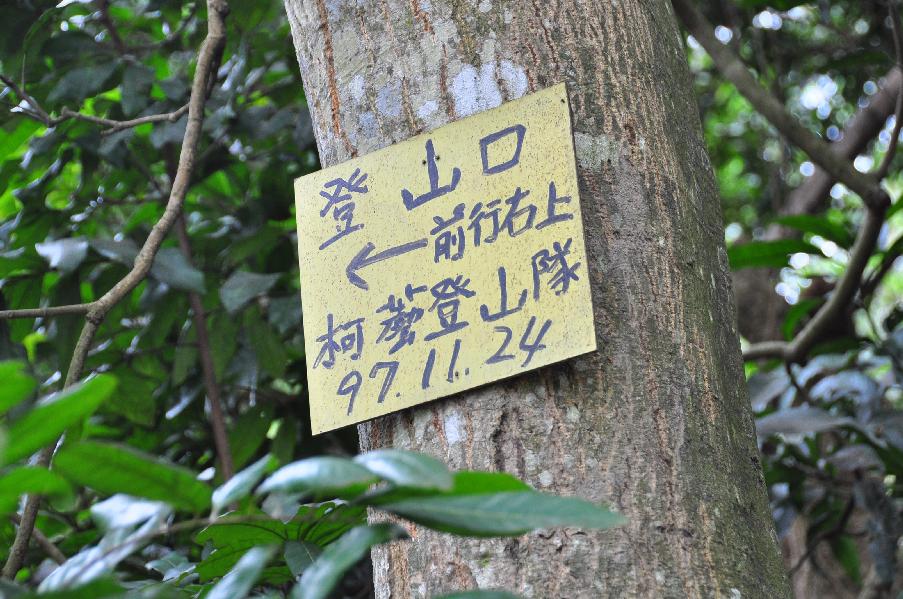 登山口
←前行右上
柯蔾登山隊
97.11.24